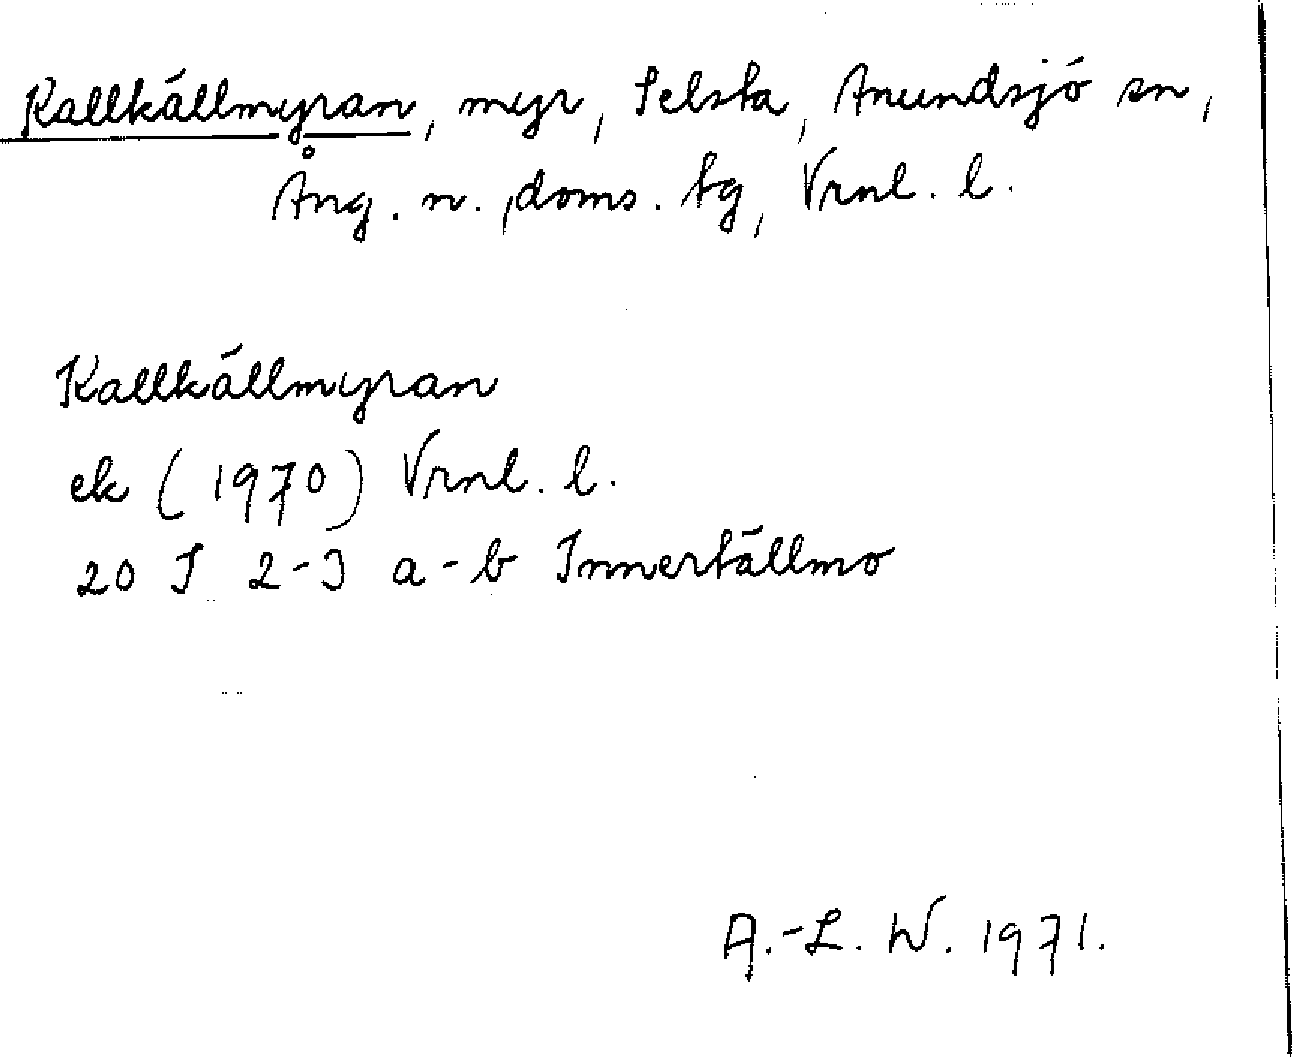 Kallkällmyran, myr, Selsta, Anundsjö sn,
Ång. n., doms. tg, Vrnl. l.
Kallkällmyran
ek (1970) Vrnl. l.
20 J 2-3 a-b Innertällmo
A.-L. W. 1971.